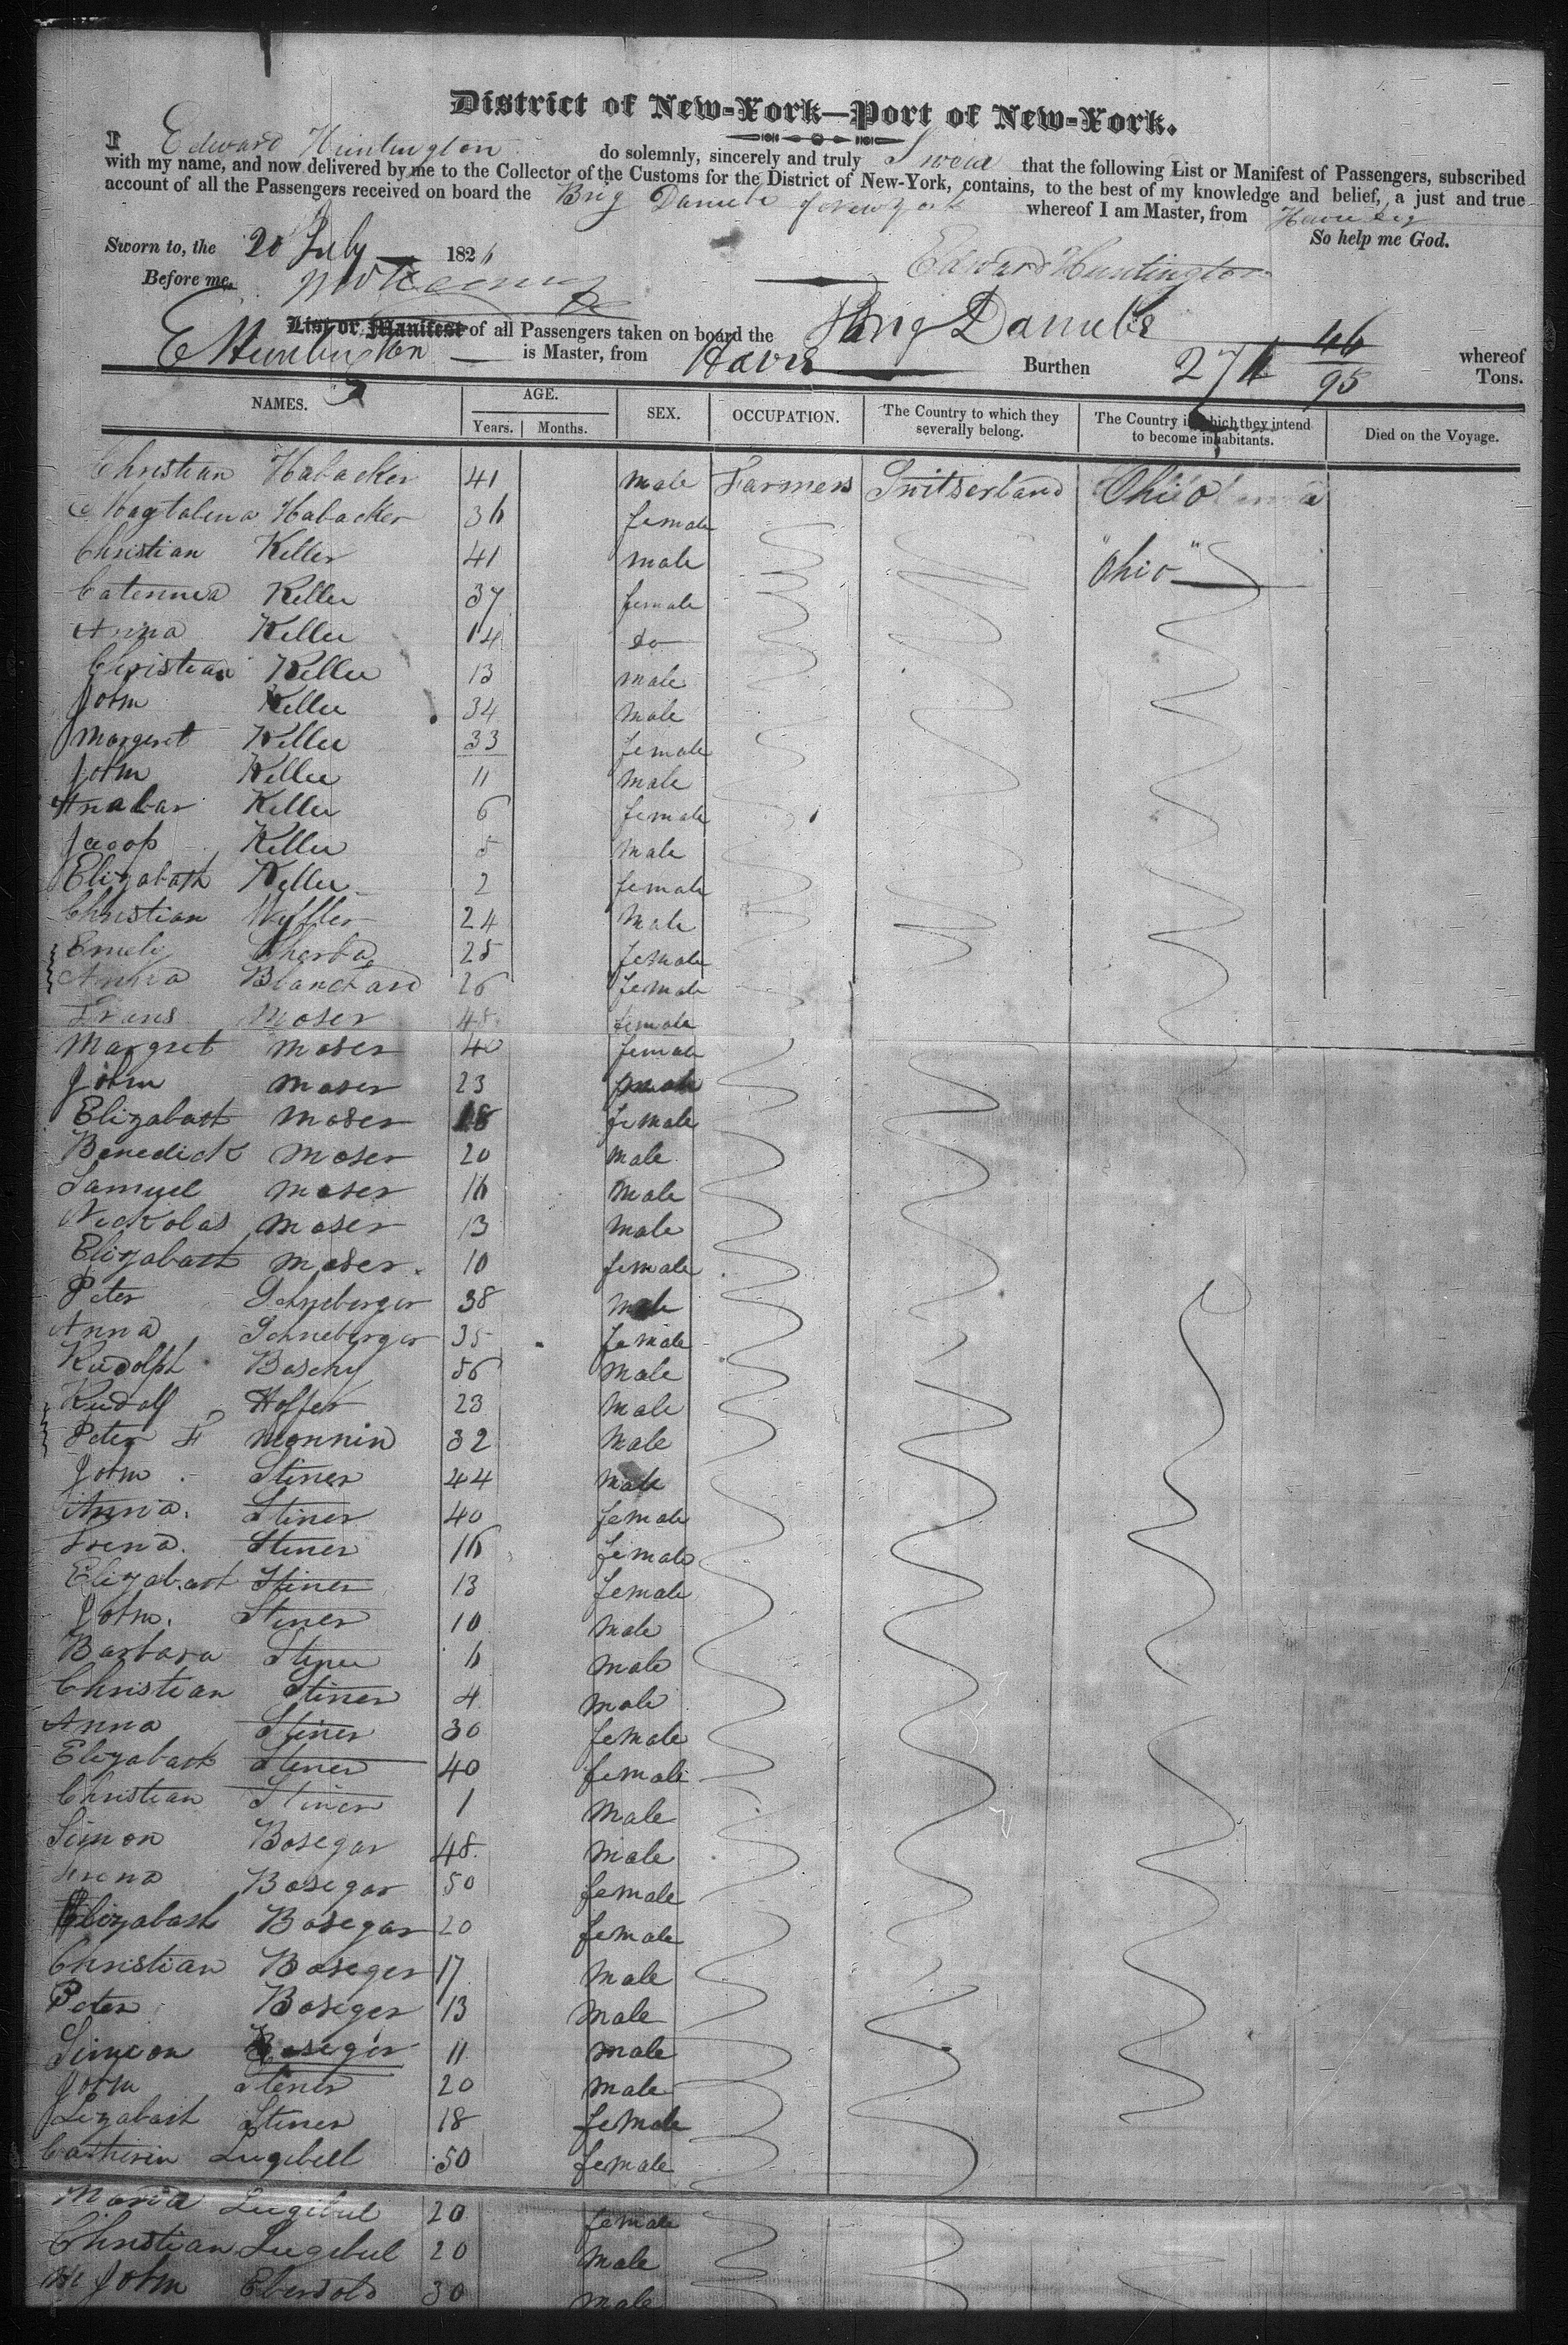 District of New-York—Port of New-York.
I Edward Huntington do solemnly, sincerely and truly Swear that the following List or Manifest of Passengers, subscribed
with my name, and now delivered by me to the Collector of the Customs for the District of New-York, contains, to the best of my knowledge and belief, a just and true
account of all the Passengers received on board the Brig Danube of New York whereof I am Master, from
So help me God.
Sworn to, the 20 July 1826
Before me,
Edward Huntington
List or Manifest of all Passengers taken on board the Brig Danube whereof
E Huntington is Master, from Havre Burthen 274 46/95 Tons.
NAMES. AGE. SEX. OCCUPATION. The Country to which they severally belong. The Country in which they intend to become inhabitants. Died on the Voyage.
Years. Months.
Christian Habacker 41 male Farmers Switserland Ohio
Magtalena Habacker 36 female
Christian Keller 41 male "Ohio"
Catennea Keller 37 female
Anna Keller 14 do
Christian Keller 13 male
John Keller 34 male
Margeret Keller 33 female
John Keller 11 male
Anabar Keller 6 female
Jacop Keller 5 male
Elizabath Keller 2 female
Christian 24 male
Emely 25 female
Anna Blanchard 26 female
Frans Moser 48 female
Margret Moser 40 female
John Moser 23 male
Elizabath Moser 18 female
Benedick Moser 20 male
Samuel Moser 16 male
Nickolas Moser 13 male
Elizabath Moser 10 female
Peter Schneberger 38 male
Anna Schneberger 35 female
Rudolph Baschy 56 male
Rudolf Hoffer 23 male
Peter F Monnin 32 male
John Stiner 44 male
Anna Stiner 40 female
Frena Stiner 16 female
Elizabast Stiner 13 female
John Stiner 10 male
Barbara Stiner 6 male
Christian Stiner 4 male
Anna Stiner 30 female
Elizabath Stiner 40 female
Christian Stiner 1 male
Simon Bosegar 48 male
Frena Bosegar 50 female
Elizabash Bosegar 20 female
Christian Boseger 17 male
Peter Boseger 13 male
Simeon Boseger 11 male
John Stener 20 male
Lizabast Stener 18 female
Catherin Lugibell 50 female
Maria Lugibul 20 female
Christian Lugibul 20 male
John Ebersold 30 male